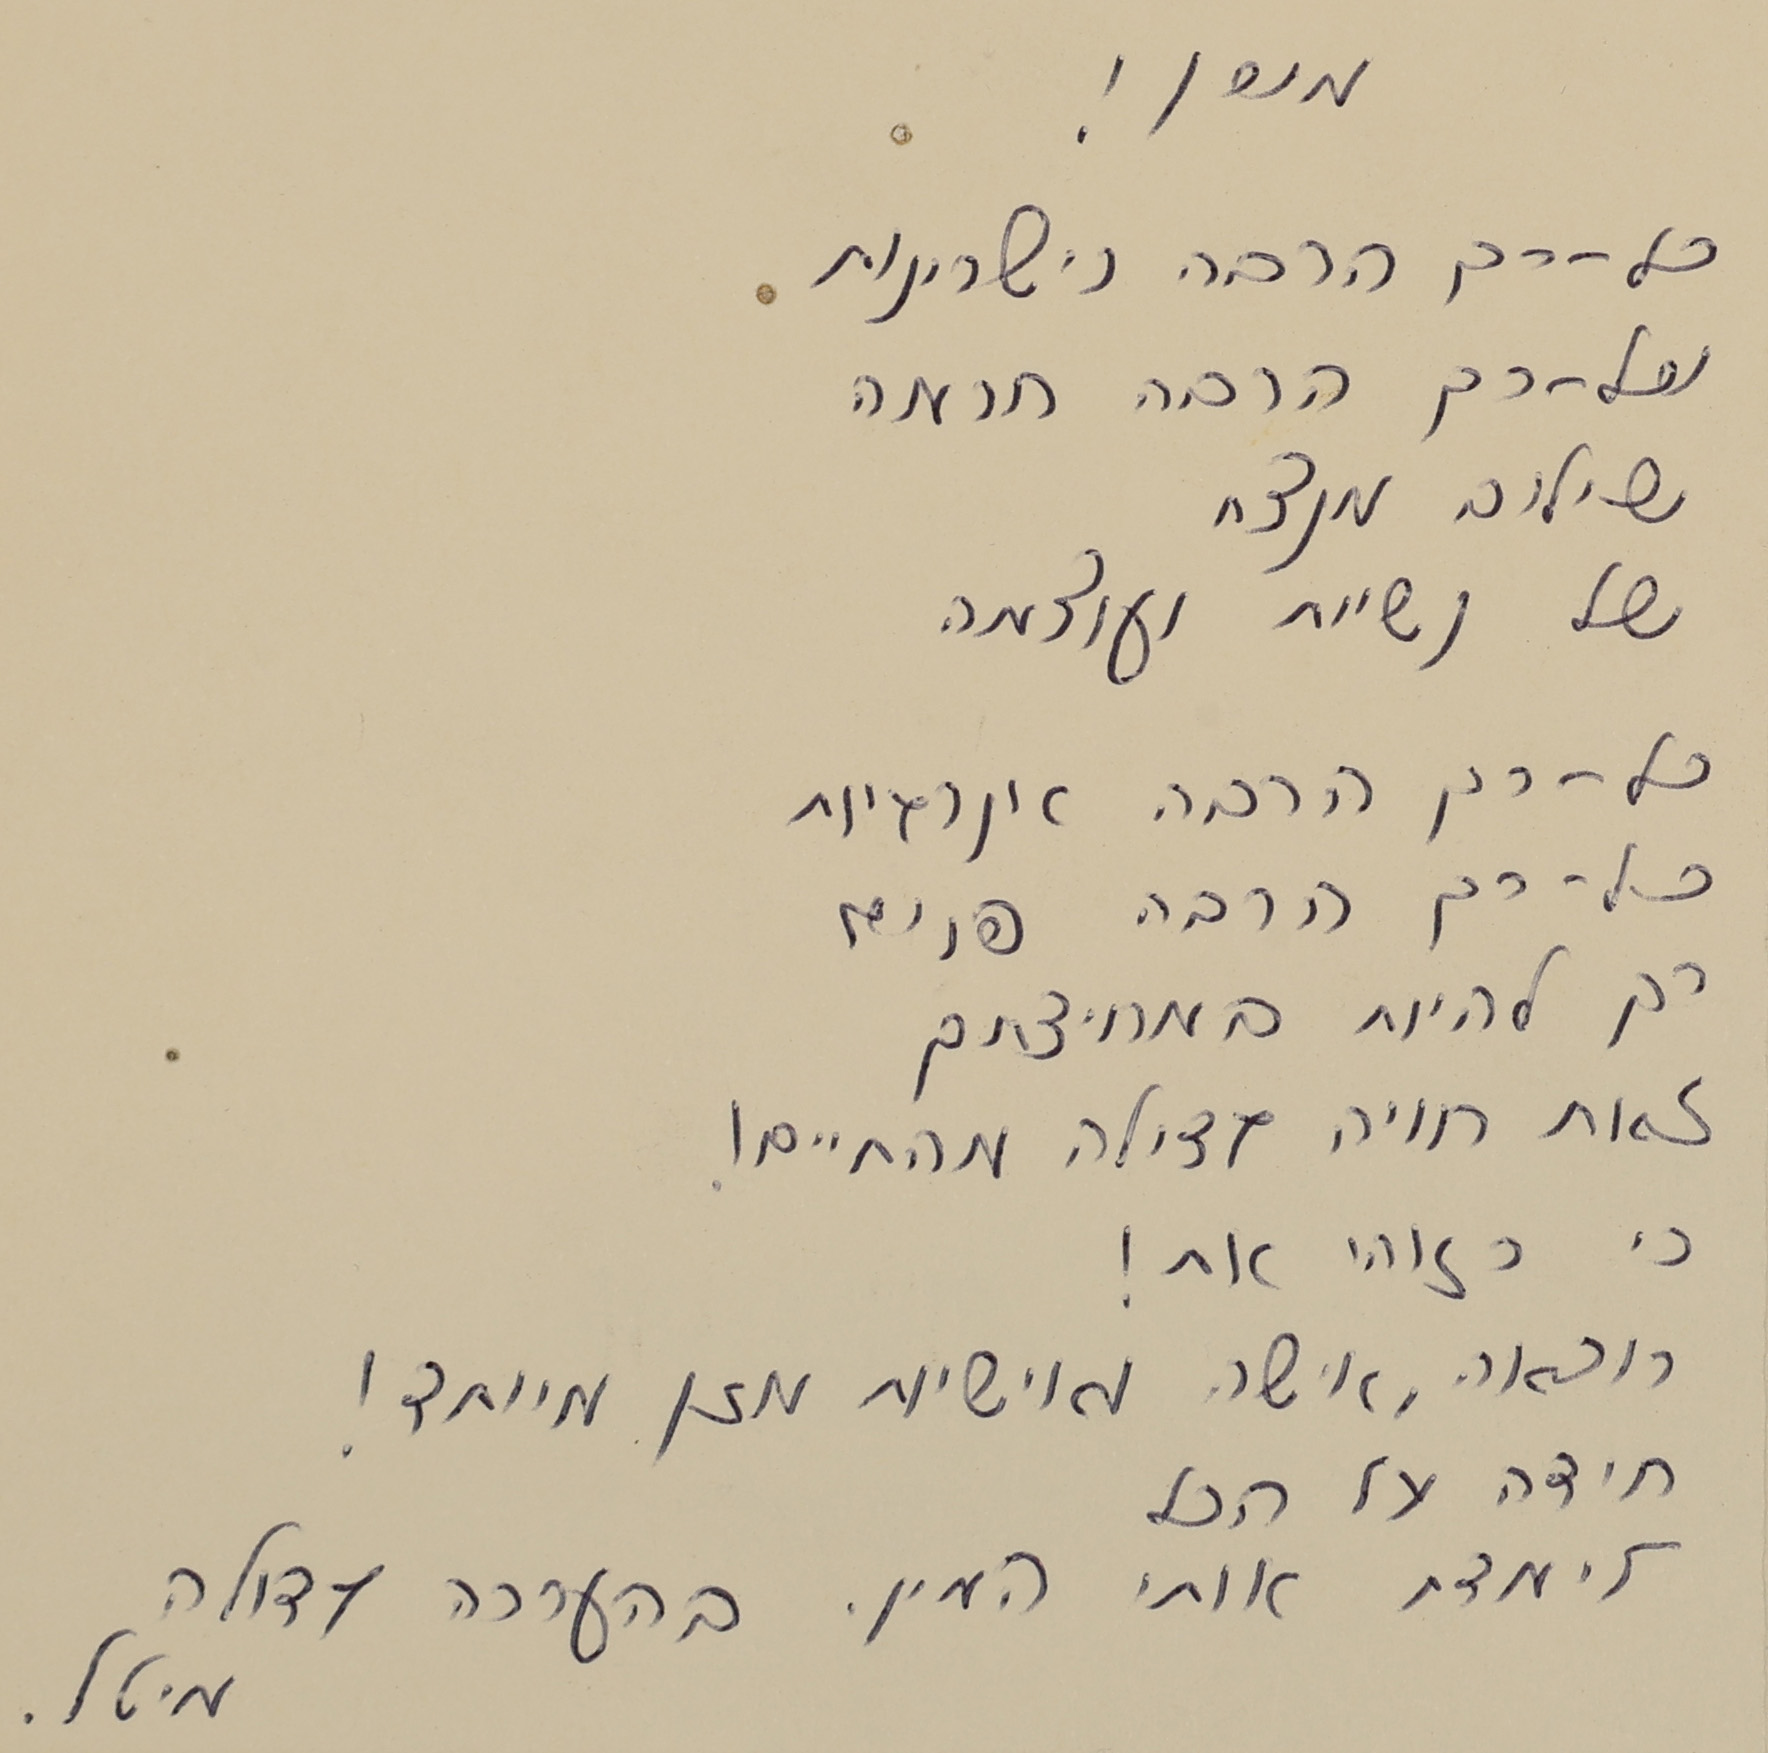 כל-כך הרבה כישרונות
וכל-כך הרבה חוכמה
שילוב מנצח
של נשיות ועוצמה
כל-כך הרבה אנרגיות
כל-כך הרבה פנים
רק להיות במחיצתך
זאת חוויה גדולה מהחיים!
כי כזאתי את!
רופאה, אישה ואישיות מזן מיוחד!
תודה על הכל
לימדת אותי המון. בהערכה גדולה
מיטל.